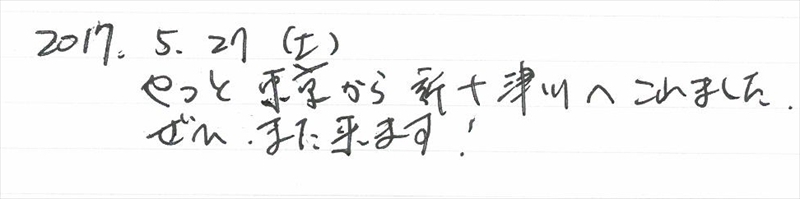 2017. 5. 27 (土)
やっと東京から新十津川へこれました.
ぜひ.また来ます!